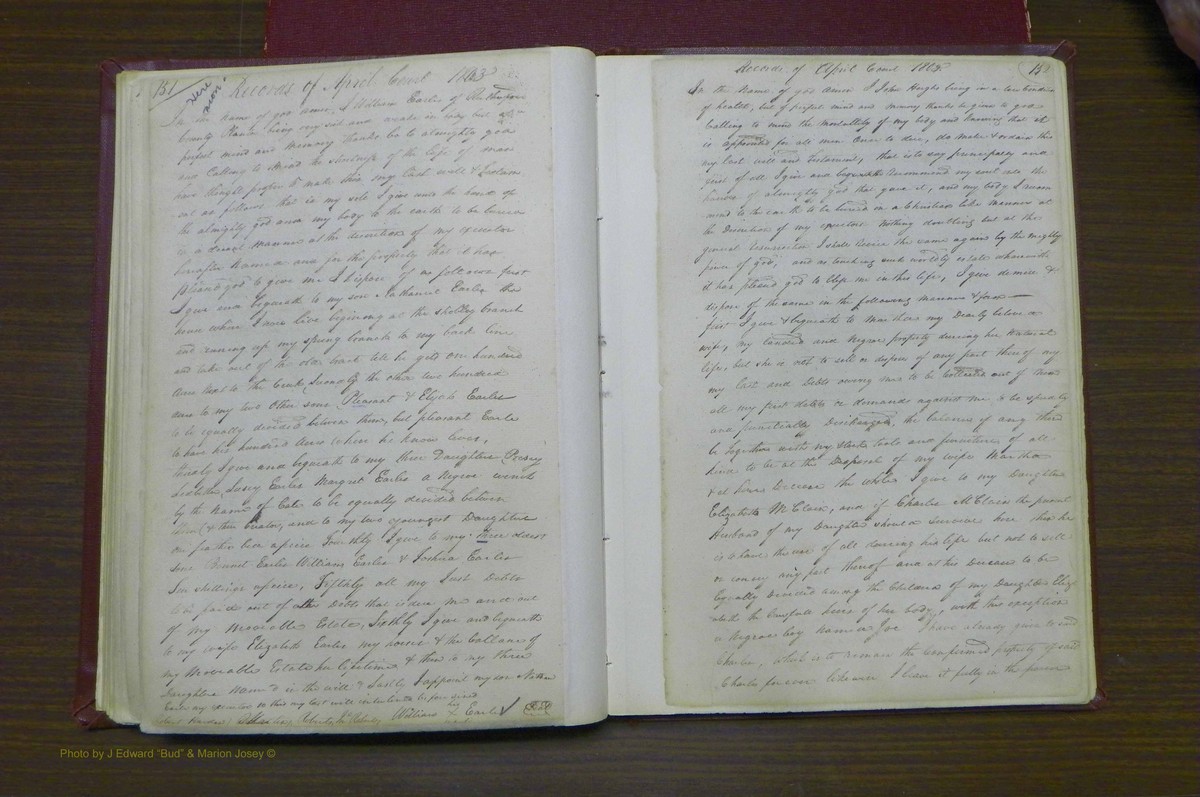 151
Records of April Court 1863
In the name of god amen, I William Earles of
County being very sick and weak in body but of
perfect mind and memory thanks be to almighty god
and Calling to mind the shortness of the life of man
have thought proper to make this my last will &
and as follows that is my sole I give unto the hands of
the almighty god and my body to the earth to be buried
in a decent manner at the discretion of my executor
hereafter named and for the property that it has
pleased god to give me I dispose of as follows first
I give and bequeath to my son Nathaniel Earles the
house where I now live begining at the branch
and runing up my spring branch to my back line
and take out of the tract till he gets one hundred
acres next to the Creek Secondly the other two hundred
acres to my two other sons Pleasant & Elijah Earles
to be equally devided between them, but pleasant Earles
to have his hundred acres where he know lives,
thirdly I give and bequeath to my three Daughters
Susey Earles Margret Earles a Negroe wench
by the name of Cate to be equally devided between
them and to my two youngest Daughters
one feather bed apiece Fourthly I give to my three oldest
sons Earles William Earles & Joshua Earles
Ten shillings apiece, Fifthly all my Just Debts
to be paid out of the Debts that is due me and out
of my moveable Estate, Sixthly I give and bequeath
to my wife Elizabeth Earles my & the ballance of
my moveable Estate her lifetime & then to my three
Daughters Named in the will & Lastly I appoint my son Nathan
Earles my executor
William Earles

Records of April Court 1863
In the Name of god amen I John Hughs being in a low
of health, but of perfect mind and memory thanks be given to god
Calling to mind the mortality of my body and knowing that it
is appointed for all men once to die, do make & ordain this
my last will and Testament, that is to say principally and
first of all I give and bequeathe Recommend my soul into the
hands of almighty god that gave it, and my body I recom
mend to the earth to be buried in a Christian like manner at
the Discretion of my executors nothing doubting but at the
general resurrection I shall receive the same again by the mighty
power of god; and as touching such worldly estate wherewith
it has pleased god to bless me in this life, I give demise &
dispose of the same in the following manner & form—
first I give & bequeath to Marthew my Dearly beloved
wife, my landed and Negroe property during her Natural
life, but she is not to sell or dispose of any part thereof my
my last and Debts owing me to be Collected out of them
all my just debts or demands against me to be speedy
and punctually Discharged, the balance if any there
be together with my stock tools and furniture of all
kind to be at the Disposal of my wife Martha
the whole I give to my Daughter
Elizabeth McClain, and if Charles McClain the present
Husband of my Daughter should survive her then he
is to have the use of all during his life but not to sell
or convey any part thereof and at his Decease to be
Equally Devided among the Children of my Daughter Eliz
abeth the lawfull heirs of her body, with this exception
a Negroe boy named Joe I have already given to said
Charles, which is to remain the Confirmed property of said
Charles forever likewise I leave it fully in the power

Photo by J Edward "Bud" & Marion Josey ©